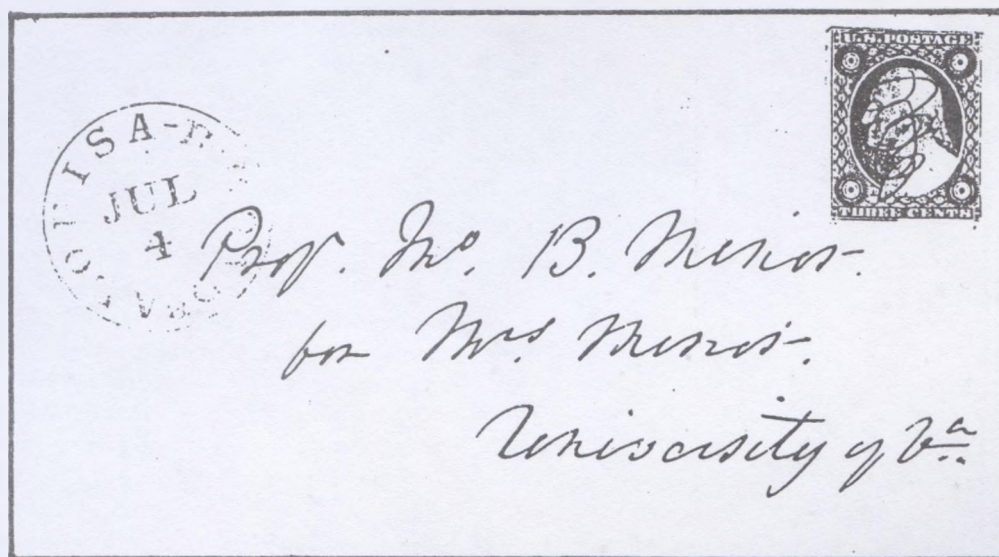 U.S. POSTAGE
THREE CENTS
LOUISA
JUL
4
VA
Prof. Jno. B. Minor.
for Mrs Minor.
University of Va